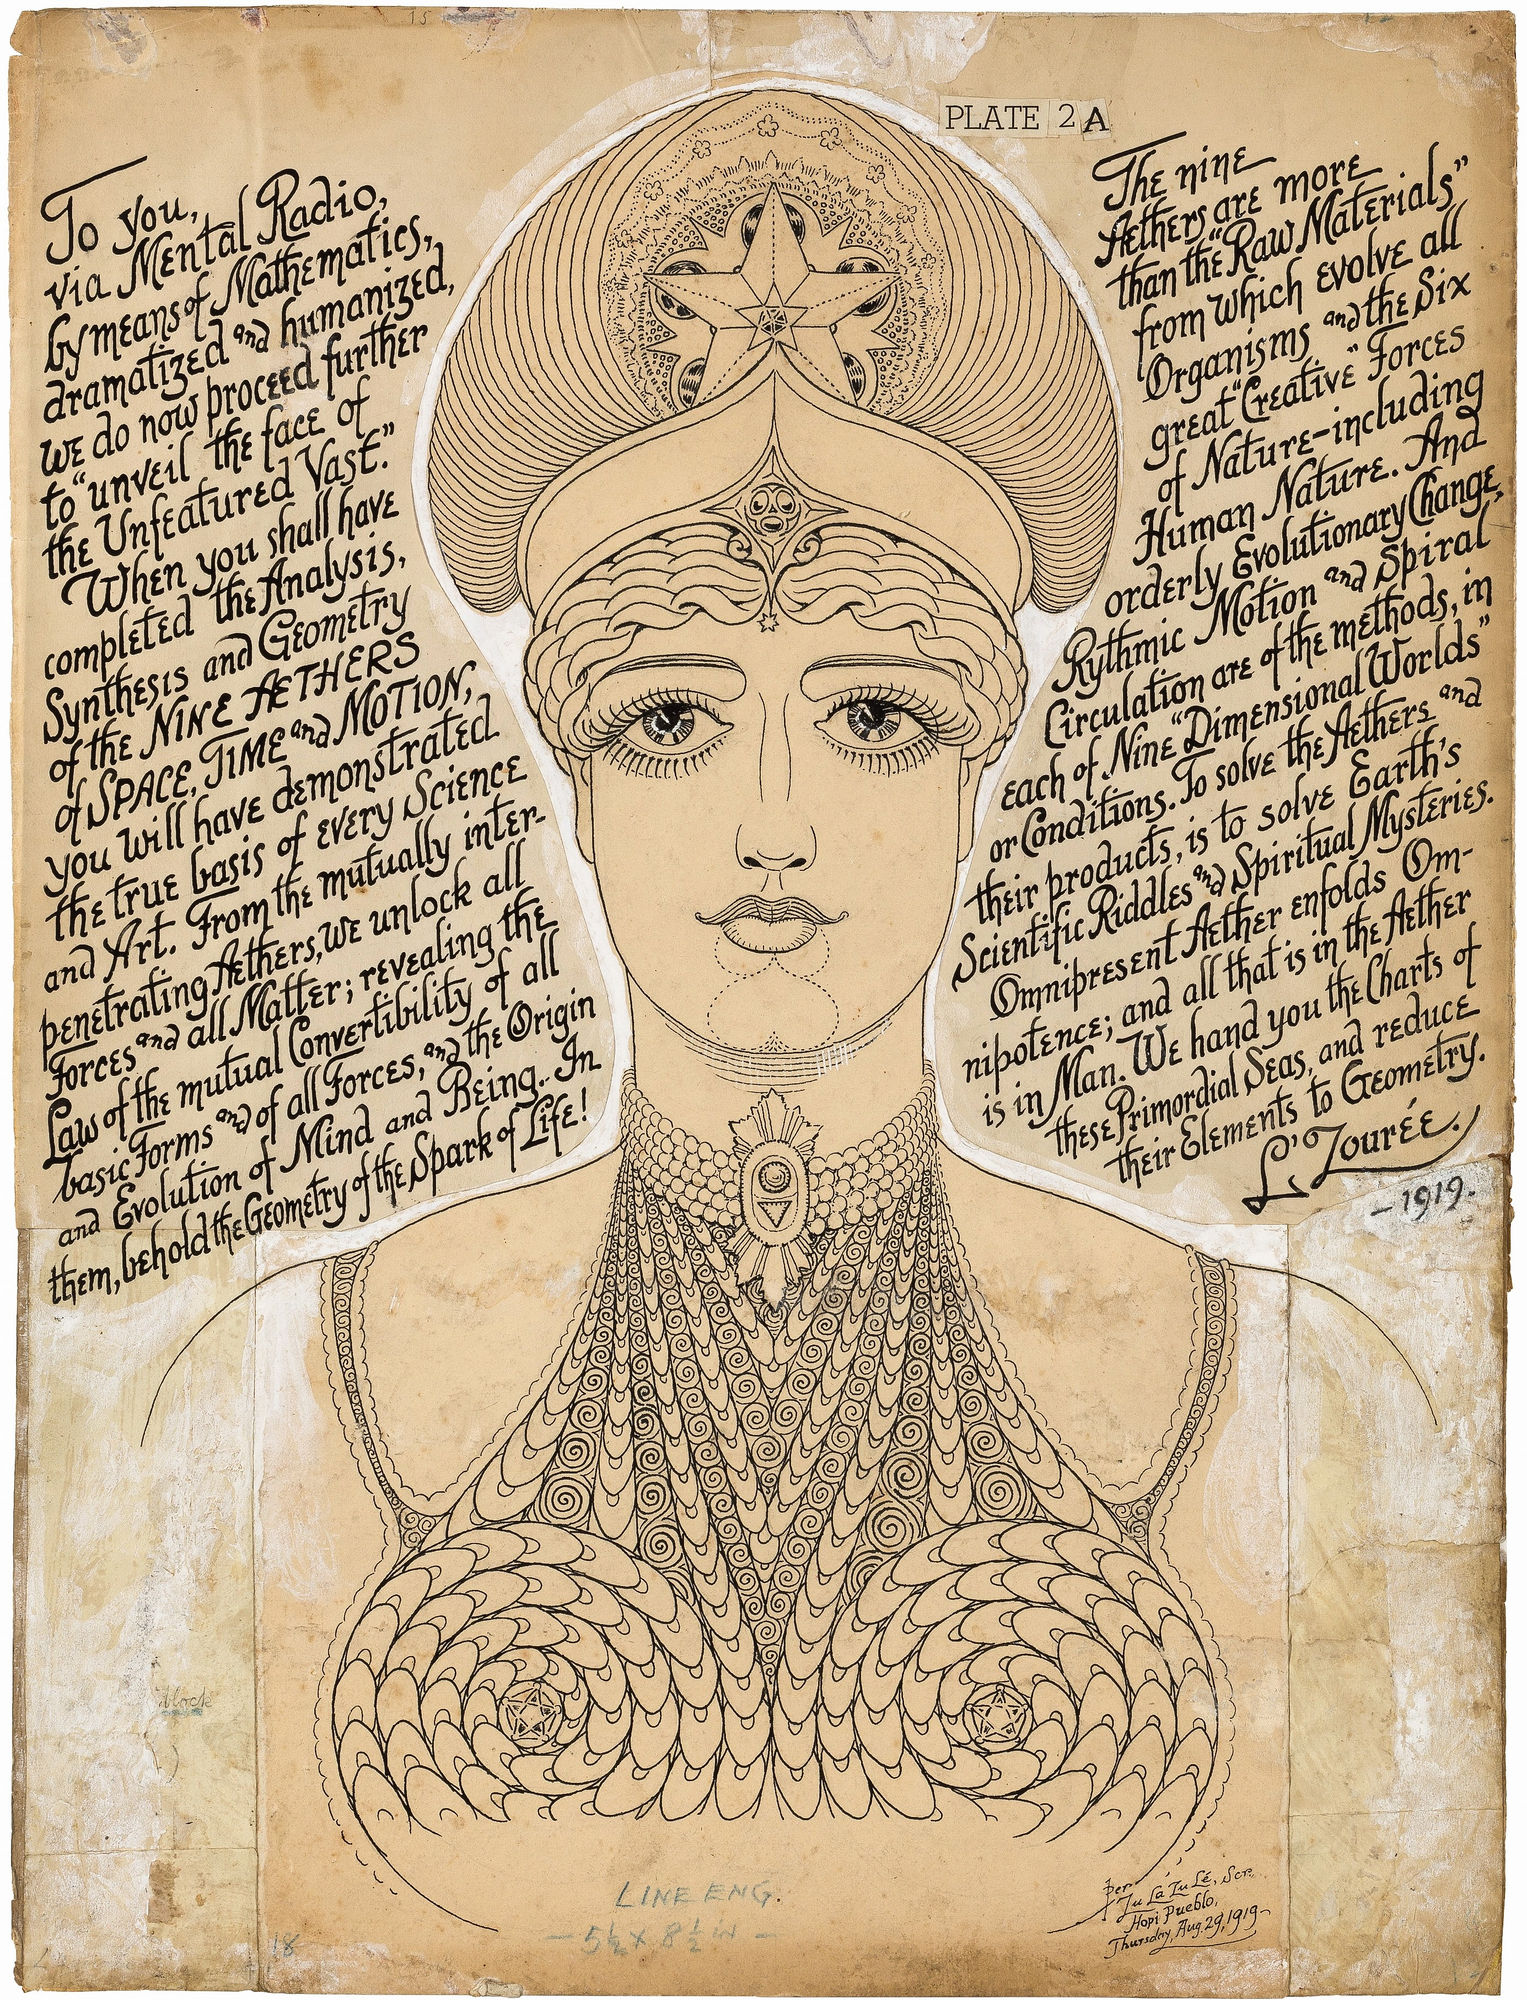 PLATE 2 A
To you,
via Mental Radio,
by means of Mathematics,
dramatized and humanized,
we do now proceed further
to "unveil the face of
the Unfeatured Vast."
When you shall have
completed the Analysis,
Synthesis and Geometry
of the NINE AETHERS
of SPACE, TIME and MOTION,
you will have demonstrated
the true basis of every Science
and Art. From the mutually inter-
penetrating Aethers, we unlock all
Forces and all Matter; revealing the
Law of the mutual Convertibility of all
basic Forms and of all Forces, and the Origin
and Evolution of Mind and Being. In
them, behold the Geometry of the Spark of Life!
The nine
Aethers are more
than the "Raw Materials"
from which evolve all
Organisms and the Six
great "Creative" Forces
of Nature-including
Human Nature. And
orderly Evolutionary Change,
Rythmic Motion and Spiral
Circulation are of the methods, in
each of Nine "Dimensional Worlds"
or Conditions. To solve the Aethers and
their products, is to solve Earth's
Scientific Riddles and Spiritual Mysteries.
Omnipresent Aether enfolds Om-
nipotence; and all that is in the Aether
is in Man. We hand you the Charts of
these Primordial Seas, and reduce
their Elements to Geometry.
L'Zourée.
-1919.
block
LINE ENG.
- 5½ x 8½ in -
18
per
Zu La Zu Lé, Scr.
Hopi Pueblo,
Thursday, Aug. 29, 1919-